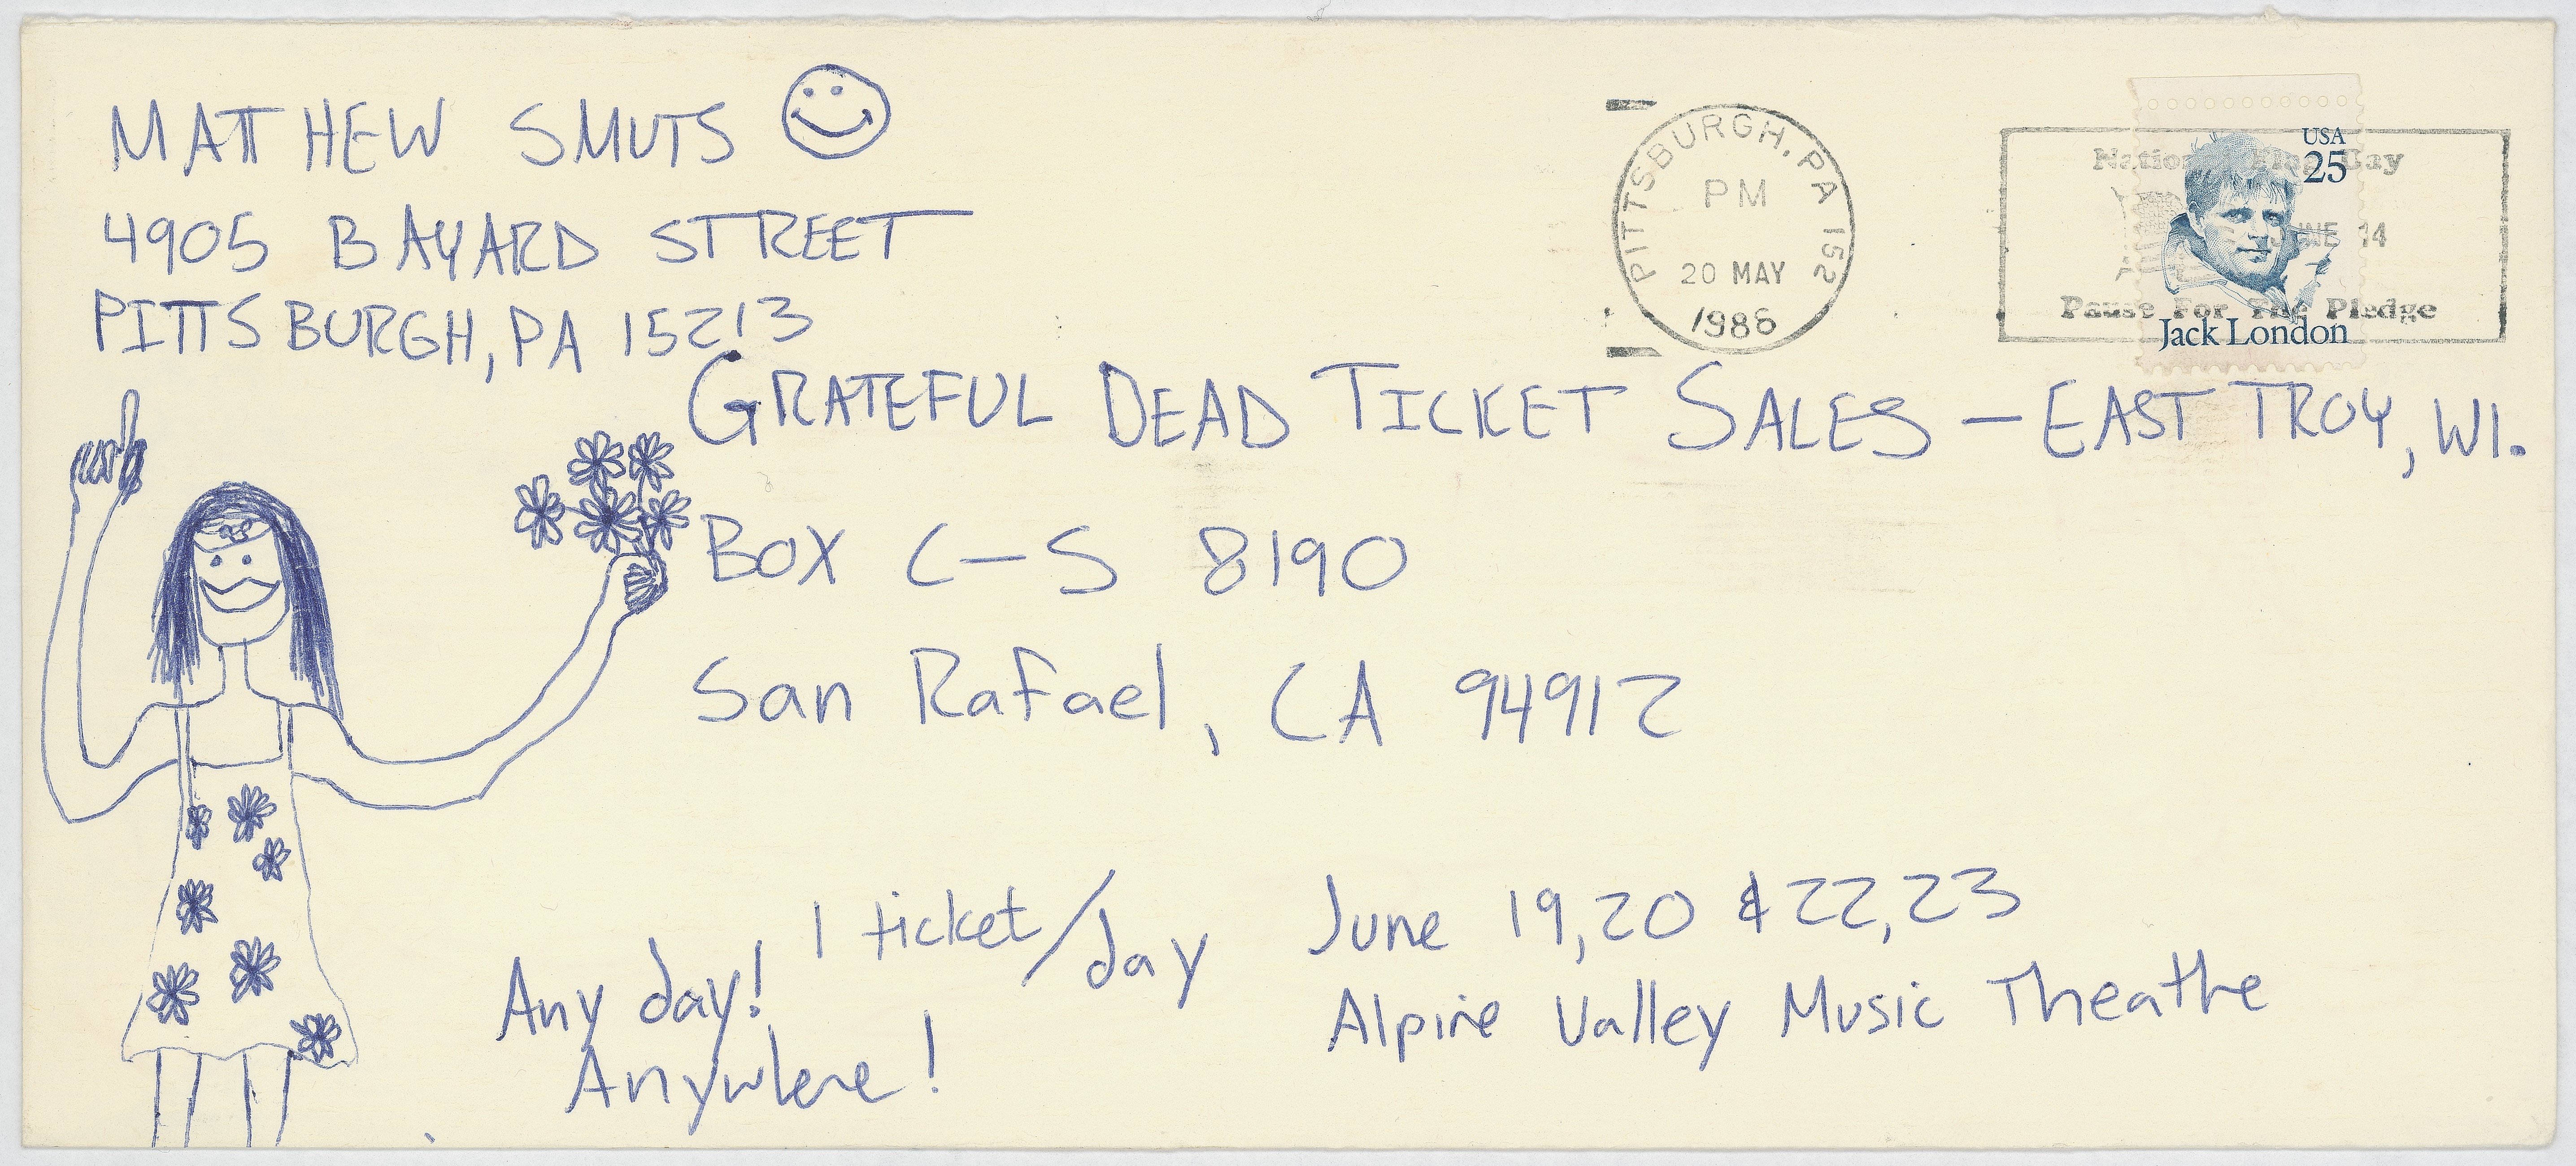 MATTHEW SMUTS
4905 BAYARD STREET
PITTSBURGH, PA 15213
PITTSBURGH, PA 152
PM
20 MAY
1986
National Flag Day
JUNE 14
Pause For The Pledge
USA
25
Jack London
GRATEFUL DEAD TICKET SALES - EAST TROY, WI.
BOX C-S 8190
San Rafael, CA 94912
1 ticket/day
Any day!
Anywhere!
June 19,20 & 22,23
Alpine Valley Music Theatre